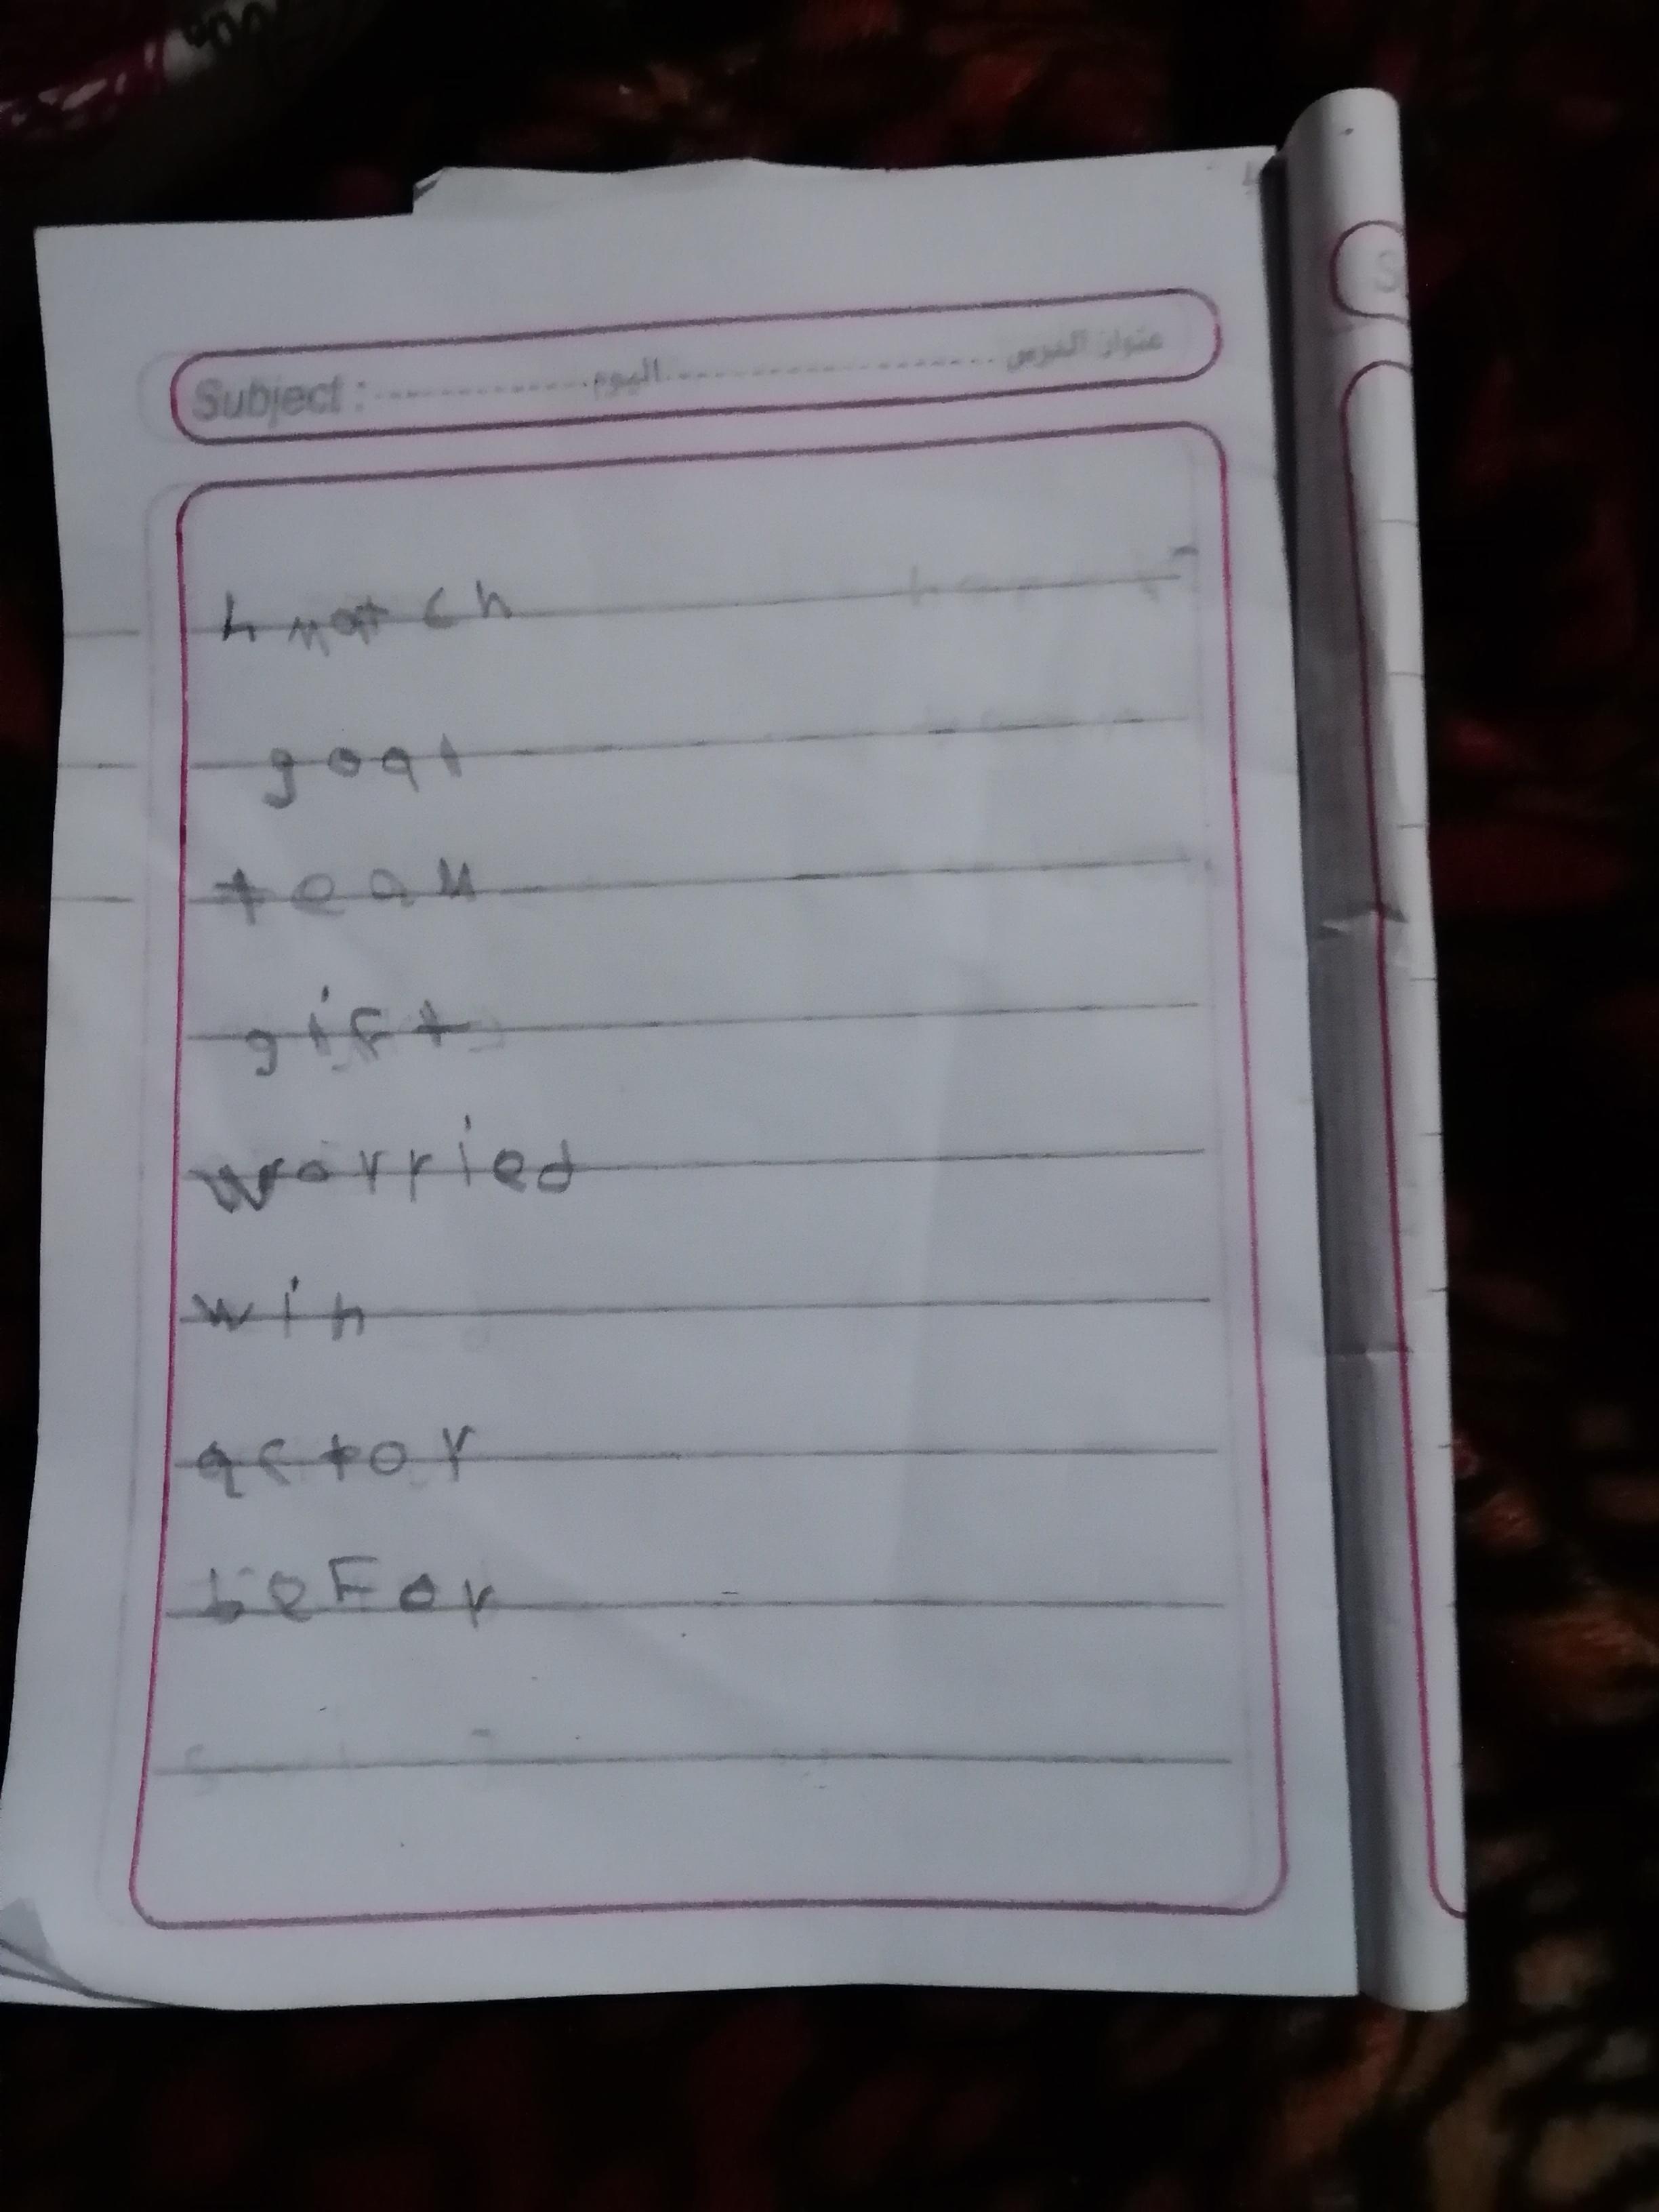 Subject : ............ اليوم .................... عنوان الدرس
match
goat
team
gift
worried
win
actor
beFor